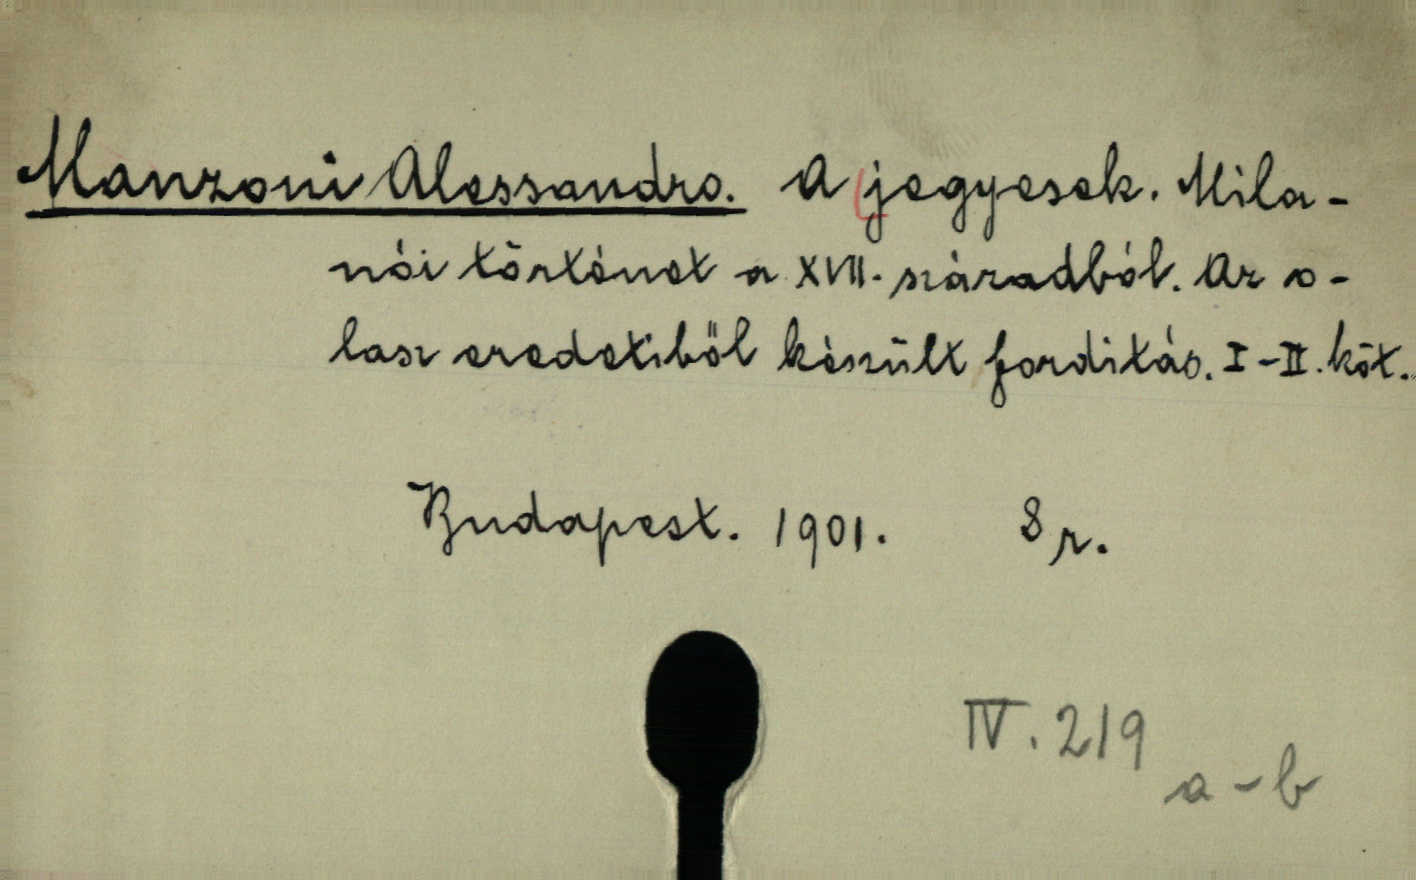 Manzoni Alessandro. A jegyesek. Mila-
nói történet a XVII. századból. Az o-
lasz eredetiből készült forditás. I-II. köt.
Budapest. 1901. 8 r.
IV. 219
a-b